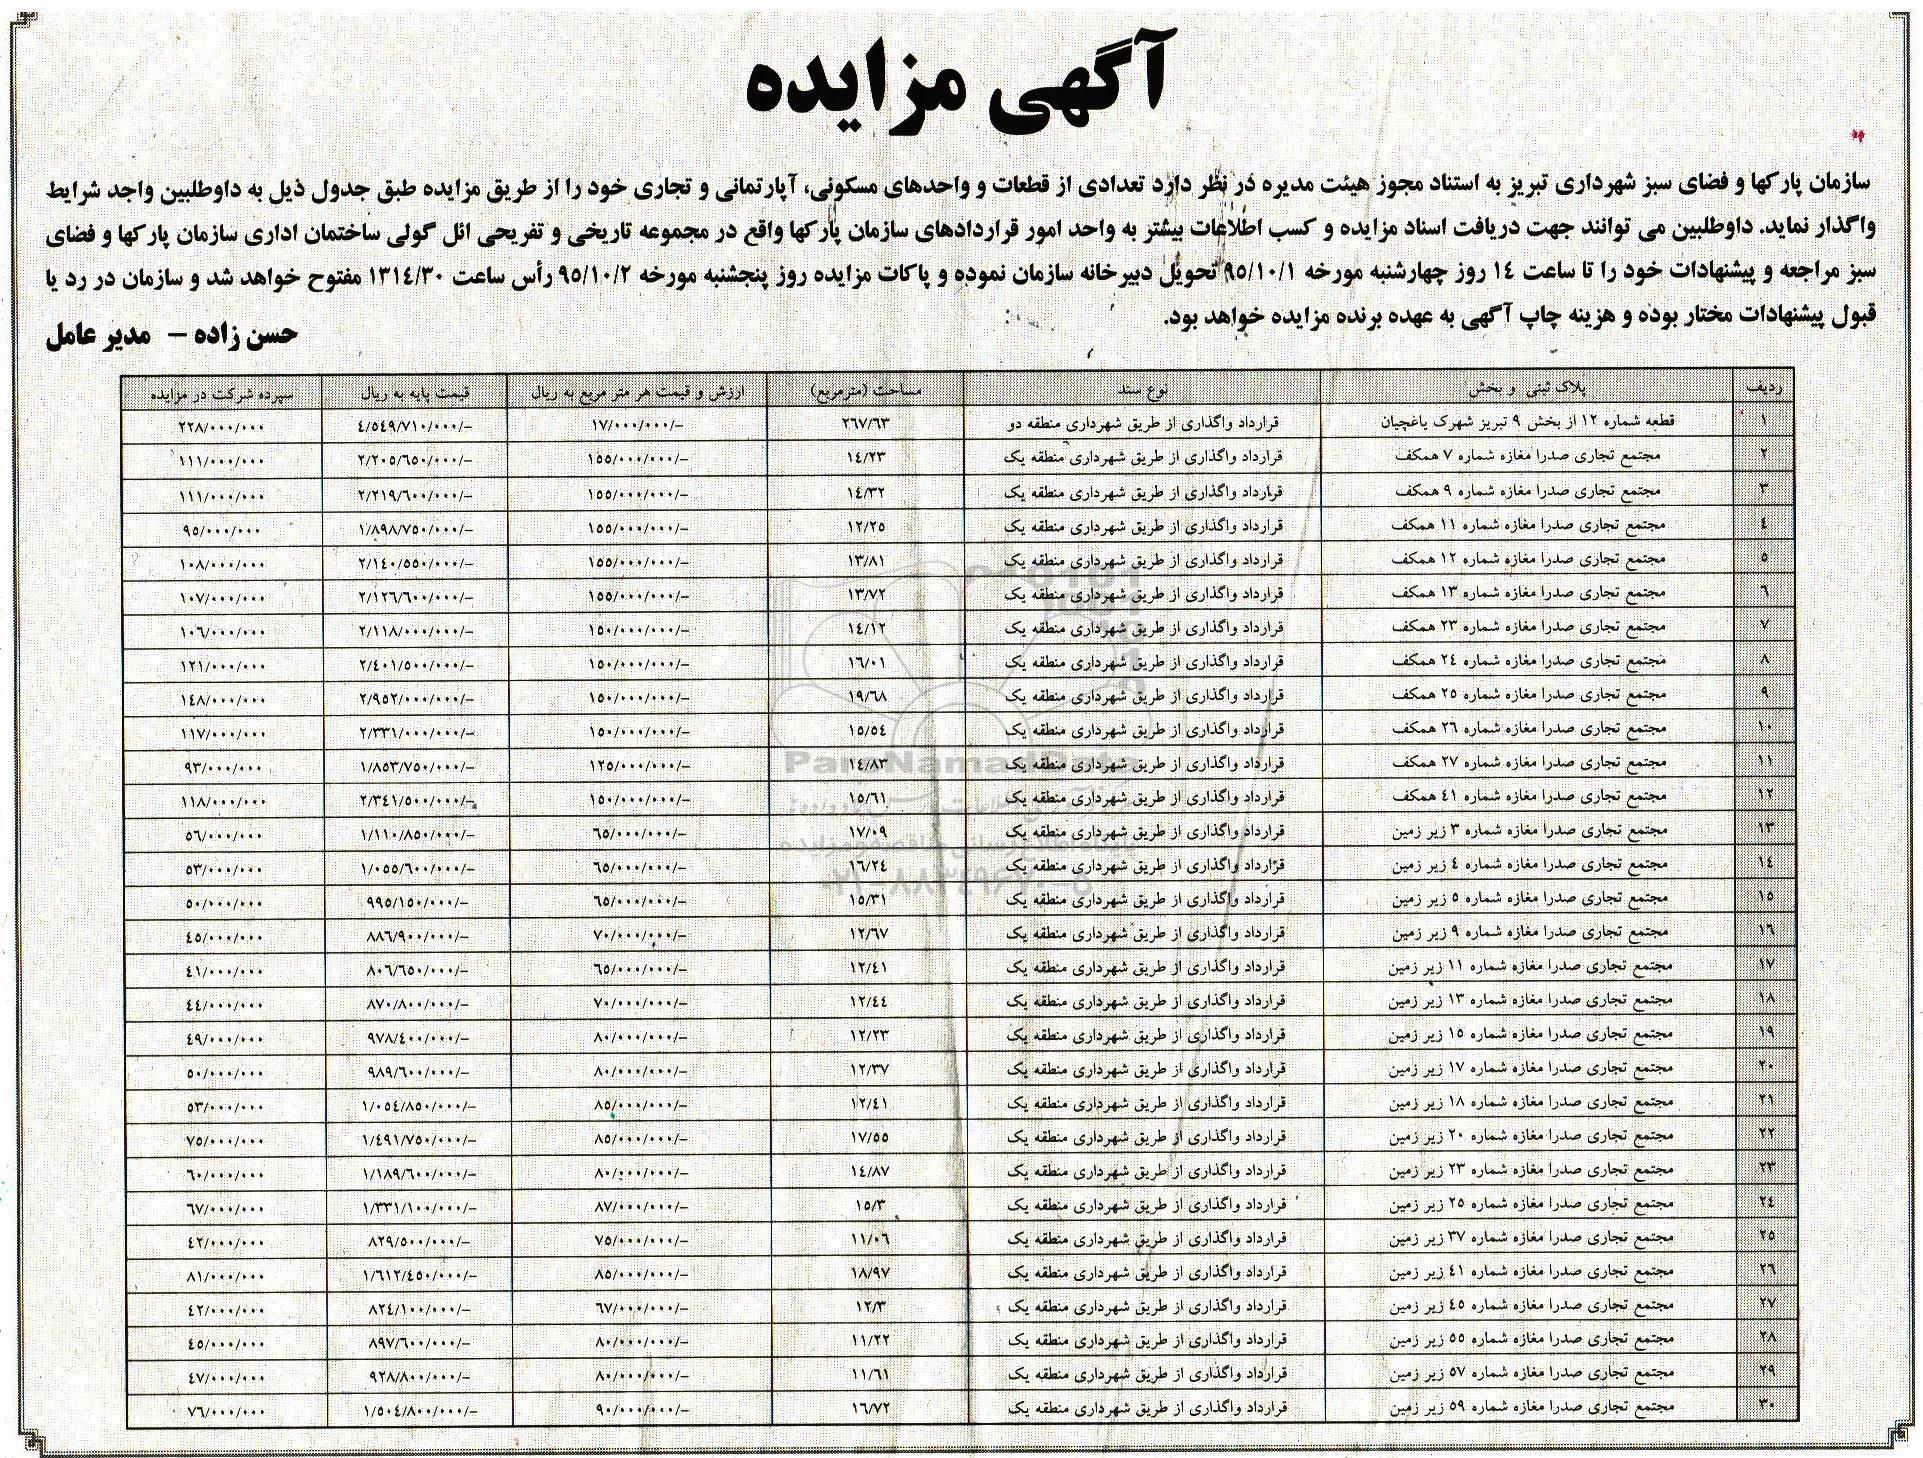 آگهی مزایده
سازمان پارکها و فضای سبز شهرداری تبریز به استناد مجوز هیئت مدیره در نظر دارد تعدادی از قطعات و واحدهای مسکونی، آپارتمانی و تجاری خود را از طریق مزایده طبق جدول ذیل به داوطلبین واجد شرایط
واگذار نماید. داوطلبین می توانند جهت دریافت اسناد مزایده و کسب اطلاعات بیشتر به واحد امور قراردادهای سازمان پارکها واقع در مجموعه تاریخی و تفریحی ائل گولی ساختمان اداری سازمان پارکها و فضای
سبز مراجعه و پیشنهادات خود را تا ساعت ۱۴ روز چهارشنبه مورخه ۹۵/۱۰/۱ تحویل دبیرخانه سازمان نموده و پاکات مزایده روز پنجشنبه مورخه ۹۵/۱۰/۲ رأس ساعت ۱۳۱۴/۳۰ مفتوح خواهد شد و سازمان در رد یا
قبول پیشنهادات مختار بوده و هزینه چاپ آگهی به عهده برنده مزایده خواهد بود.
حسن زاده – مدیر عامل
ردیف پلاک ثبتی و بخش نوع سند مساحت (مترمربع) ارزش و قیمت هر متر مربع به ریال قیمت پایه به ریال سپرده شرکت در مزایده
۱ قطعه شماره ۱۲ از بخش ۹ تبریز شهرک یاغچیان قرارداد واگذاری از طریق شهرداری منطقه دو ۲۶۷/۶۳ ۱۷/۰۰۰/۰۰۰/- ۴/۵۴۹/۷۱۰/۰۰۰/- ۲۲۸/۰۰۰/۰۰۰
۲ مجتمع تجاری صدرا مغازه شماره ۷ همکف قرارداد واگذاری از طریق شهرداری منطقه یک ۱۴/۲۳ ۱۵۵/۰۰۰/۰۰۰/- ۲/۲۰۵/۶۵۰/۰۰۰/- ۱۱۱/۰۰۰/۰۰۰
۳ مجتمع تجاری صدرا مغازه شماره ۹ همکف قرارداد واگذاری از طریق شهرداری منطقه یک ۱۴/۳۲ ۱۵۵/۰۰۰/۰۰۰/- ۲/۲۱۹/۶۰۰/۰۰۰/- ۱۱۱/۰۰۰/۰۰۰
۴ مجتمع تجاری صدرا مغازه شماره ۱۱ همکف قرارداد واگذاری از طریق شهرداری منطقه یک ۱۲/۲۵ ۱۵۵/۰۰۰/۰۰۰/- ۱/۸۹۸/۷۵۰/۰۰۰/- ۹۵/۰۰۰/۰۰۰
۵ مجتمع تجاری صدرا مغازه شماره ۱۲ همکف قرارداد واگذاری از طریق شهرداری منطقه یک ۱۳/۸۱ ۱۵۵/۰۰۰/۰۰۰/- ۲/۱۴۰/۵۵۰/۰۰۰/- ۱۰۸/۰۰۰/۰۰۰
۶ مجتمع تجاری صدرا مغازه شماره ۱۳ همکف قرارداد واگذاری از طریق شهرداری منطقه یک ۱۳/۷۲ ۱۵۵/۰۰۰/۰۰۰/- ۲/۱۲۶/۶۰۰/۰۰۰/- ۱۰۷/۰۰۰/۰۰۰
۷ مجتمع تجاری صدرا مغازه شماره ۲۳ همکف قرارداد واگذاری از طریق شهرداری منطقه یک ۱۴/۱۲ ۱۵۰/۰۰۰/۰۰۰/- ۲/۱۱۸/۰۰۰/۰۰۰/- ۱۰۶/۰۰۰/۰۰۰
۸ مجتمع تجاری صدرا مغازه شماره ۲۴ همکف قرارداد واگذاری از طریق شهرداری منطقه یک ۱۶/۰۱ ۱۵۰/۰۰۰/۰۰۰/- ۲/۴۰۱/۵۰۰/۰۰۰/- ۱۲۱/۰۰۰/۰۰۰
۹ مجتمع تجاری صدرا مغازه شماره ۲۵ همکف قرارداد واگذاری از طریق شهرداری منطقه یک ۱۹/۶۸ ۱۵۰/۰۰۰/۰۰۰/- ۲/۹۵۲/۰۰۰/۰۰۰/- ۱۴۸/۰۰۰/۰۰۰
۱۰ مجتمع تجاری صدرا مغازه شماره ۲۶ همکف قرارداد واگذاری از طریق شهرداری منطقه یک ۱۵/۵۴ ۱۵۰/۰۰۰/۰۰۰/- ۲/۳۳۱/۰۰۰/۰۰۰/- ۱۱۷/۰۰۰/۰۰۰
۱۱ مجتمع تجاری صدرا مغازه شماره ۲۷ همکف قرارداد واگذاری از طریق شهرداری منطقه یک ۱۴/۸۳ ۱۲۵/۰۰۰/۰۰۰/- ۱/۸۵۳/۷۵۰/۰۰۰/- ۹۳/۰۰۰/۰۰۰
۱۲ مجتمع تجاری صدرا مغازه شماره ۴۱ همکف قرارداد واگذاری از طریق شهرداری منطقه یک ۱۵/۶۱ ۱۵۰/۰۰۰/۰۰۰/- ۲/۳۴۱/۵۰۰/۰۰۰/- ۱۱۸/۰۰۰/۰۰۰
۱۳ مجتمع تجاری صدرا مغازه شماره ۳ زیر زمین قرارداد واگذاری از طریق شهرداری منطقه یک ۱۷/۰۹ ۶۵/۰۰۰/۰۰۰/- ۱/۱۱۰/۸۵۰/۰۰۰/- ۵۶/۰۰۰/۰۰۰
۱۴ مجتمع تجاری صدرا مغازه شماره ۴ زیر زمین قرارداد واگذاری از طریق شهرداری منطقه یک ۱۶/۲۴ ۶۵/۰۰۰/۰۰۰/- ۱/۰۵۵/۶۰۰/۰۰۰/- ۵۳/۰۰۰/۰۰۰
۱۵ مجتمع تجاری صدرا مغازه شماره ۵ زیر زمین قرارداد واگذاری از طریق شهرداری منطقه یک ۱۵/۳۱ ۶۵/۰۰۰/۰۰۰/- ۹۹۵/۱۵۰/۰۰۰/- ۵۰/۰۰۰/۰۰۰
۱۶ مجتمع تجاری صدرا مغازه شماره ۹ زیر زمین قرارداد واگذاری از طریق شهرداری منطقه یک ۱۲/۶۷ ۷۰/۰۰۰/۰۰۰/- ۸۸۶/۹۰۰/۰۰۰/- ۴۵/۰۰۰/۰۰۰
۱۷ مجتمع تجاری صدرا مغازه شماره ۱۱ زیر زمین قرارداد واگذاری از طریق شهرداری منطقه یک ۱۲/۴۱ ۶۵/۰۰۰/۰۰۰/- ۸۰۶/۶۵۰/۰۰۰/- ۴۱/۰۰۰/۰۰۰
۱۸ مجتمع تجاری صدرا مغازه شماره ۱۳ زیر زمین قرارداد واگذاری از طریق شهرداری منطقه یک ۱۲/۴۴ ۷۰/۰۰۰/۰۰۰/- ۸۷۰/۸۰۰/۰۰۰/- ۴۴/۰۰۰/۰۰۰
۱۹ مجتمع تجاری صدرا مغازه شماره ۱۵ زیر زمین قرارداد واگذاری از طریق شهرداری منطقه یک ۱۲/۲۳ ۸۰/۰۰۰/۰۰۰/- ۹۷۸/۴۰۰/۰۰۰/- ۴۹/۰۰۰/۰۰۰
۲۰ مجتمع تجاری صدرا مغازه شماره ۱۷ زیر زمین قرارداد واگذاری از طریق شهرداری منطقه یک ۱۲/۳۷ ۸۰/۰۰۰/۰۰۰/- ۹۸۹/۶۰۰/۰۰۰/- ۵۰/۰۰۰/۰۰۰
۲۱ مجتمع تجاری صدرا مغازه شماره ۱۸ زیر زمین قرارداد واگذاری از طریق شهرداری منطقه یک ۱۲/۴۱ ۸۵/۰۰۰/۰۰۰/- ۱/۰۵۴/۸۵۰/۰۰۰/- ۵۳/۰۰۰/۰۰۰
۲۲ مجتمع تجاری صدرا مغازه شماره ۲۰ زیر زمین قرارداد واگذاری از طریق شهرداری منطقه یک ۱۷/۵۵ ۸۵/۰۰۰/۰۰۰/- ۱/۴۹۱/۷۵۰/۰۰۰/- ۷۵/۰۰۰/۰۰۰
۲۳ مجتمع تجاری صدرا مغازه شماره ۲۳ زیر زمین قرارداد واگذاری از طریق شهرداری منطقه یک ۱۴/۸۷ ۸۰/۰۰۰/۰۰۰/- ۱/۱۸۹/۶۰۰/۰۰۰/- ۶۰/۰۰۰/۰۰۰
۲۴ مجتمع تجاری صدرا مغازه شماره ۲۵ زیر زمین قرارداد واگذاری از طریق شهرداری منطقه یک ۱۵/۳ ۸۷/۰۰۰/۰۰۰/- ۱/۳۳۱/۱۰۰/۰۰۰/- ۶۷/۰۰۰/۰۰۰
۲۵ مجتمع تجاری صدرا مغازه شماره ۳۷ زیر زمین قرارداد واگذاری از طریق شهرداری منطقه یک ۱۱/۰۶ ۷۵/۰۰۰/۰۰۰/- ۸۲۹/۵۰۰/۰۰۰/- ۴۲/۰۰۰/۰۰۰
۲۶ مجتمع تجاری صدرا مغازه شماره ۴۱ زیر زمین قرارداد واگذاری از طریق شهرداری منطقه یک ۱۸/۹۷ ۸۵/۰۰۰/۰۰۰/- ۱/۶۱۲/۴۵۰/۰۰۰/- ۸۱/۰۰۰/۰۰۰
۲۷ مجتمع تجاری صدرا مغازه شماره ۴۵ زیر زمین قرارداد واگذاری از طریق شهرداری منطقه یک ۱۲/۳ ۶۷/۰۰۰/۰۰۰/- ۸۲۴/۱۰۰/۰۰۰/- ۴۲/۰۰۰/۰۰۰
۲۸ مجتمع تجاری صدرا مغازه شماره ۵۵ زیر زمین قرارداد واگذاری از طریق شهرداری منطقه یک ۱۱/۲۲ ۸۰/۰۰۰/۰۰۰/- ۸۹۷/۶۰۰/۰۰۰/- ۴۵/۰۰۰/۰۰۰
۲۹ مجتمع تجاری صدرا مغازه شماره ۵۷ زیر زمین قرارداد واگذاری از طریق شهرداری منطقه یک ۱۱/۶۱ ۸۰/۰۰۰/۰۰۰/- ۹۲۸/۸۰۰/۰۰۰/- ۴۷/۰۰۰/۰۰۰
۳۰ مجتمع تجاری صدرا مغازه شماره ۵۹ زیر زمین قرارداد واگذاری از طریق شهرداری منطقه یک ۱۶/۷۲ ۹۰/۰۰۰/۰۰۰/- ۱/۵۰۴/۸۰۰/۰۰۰/- ۷۶/۰۰۰/۰۰۰